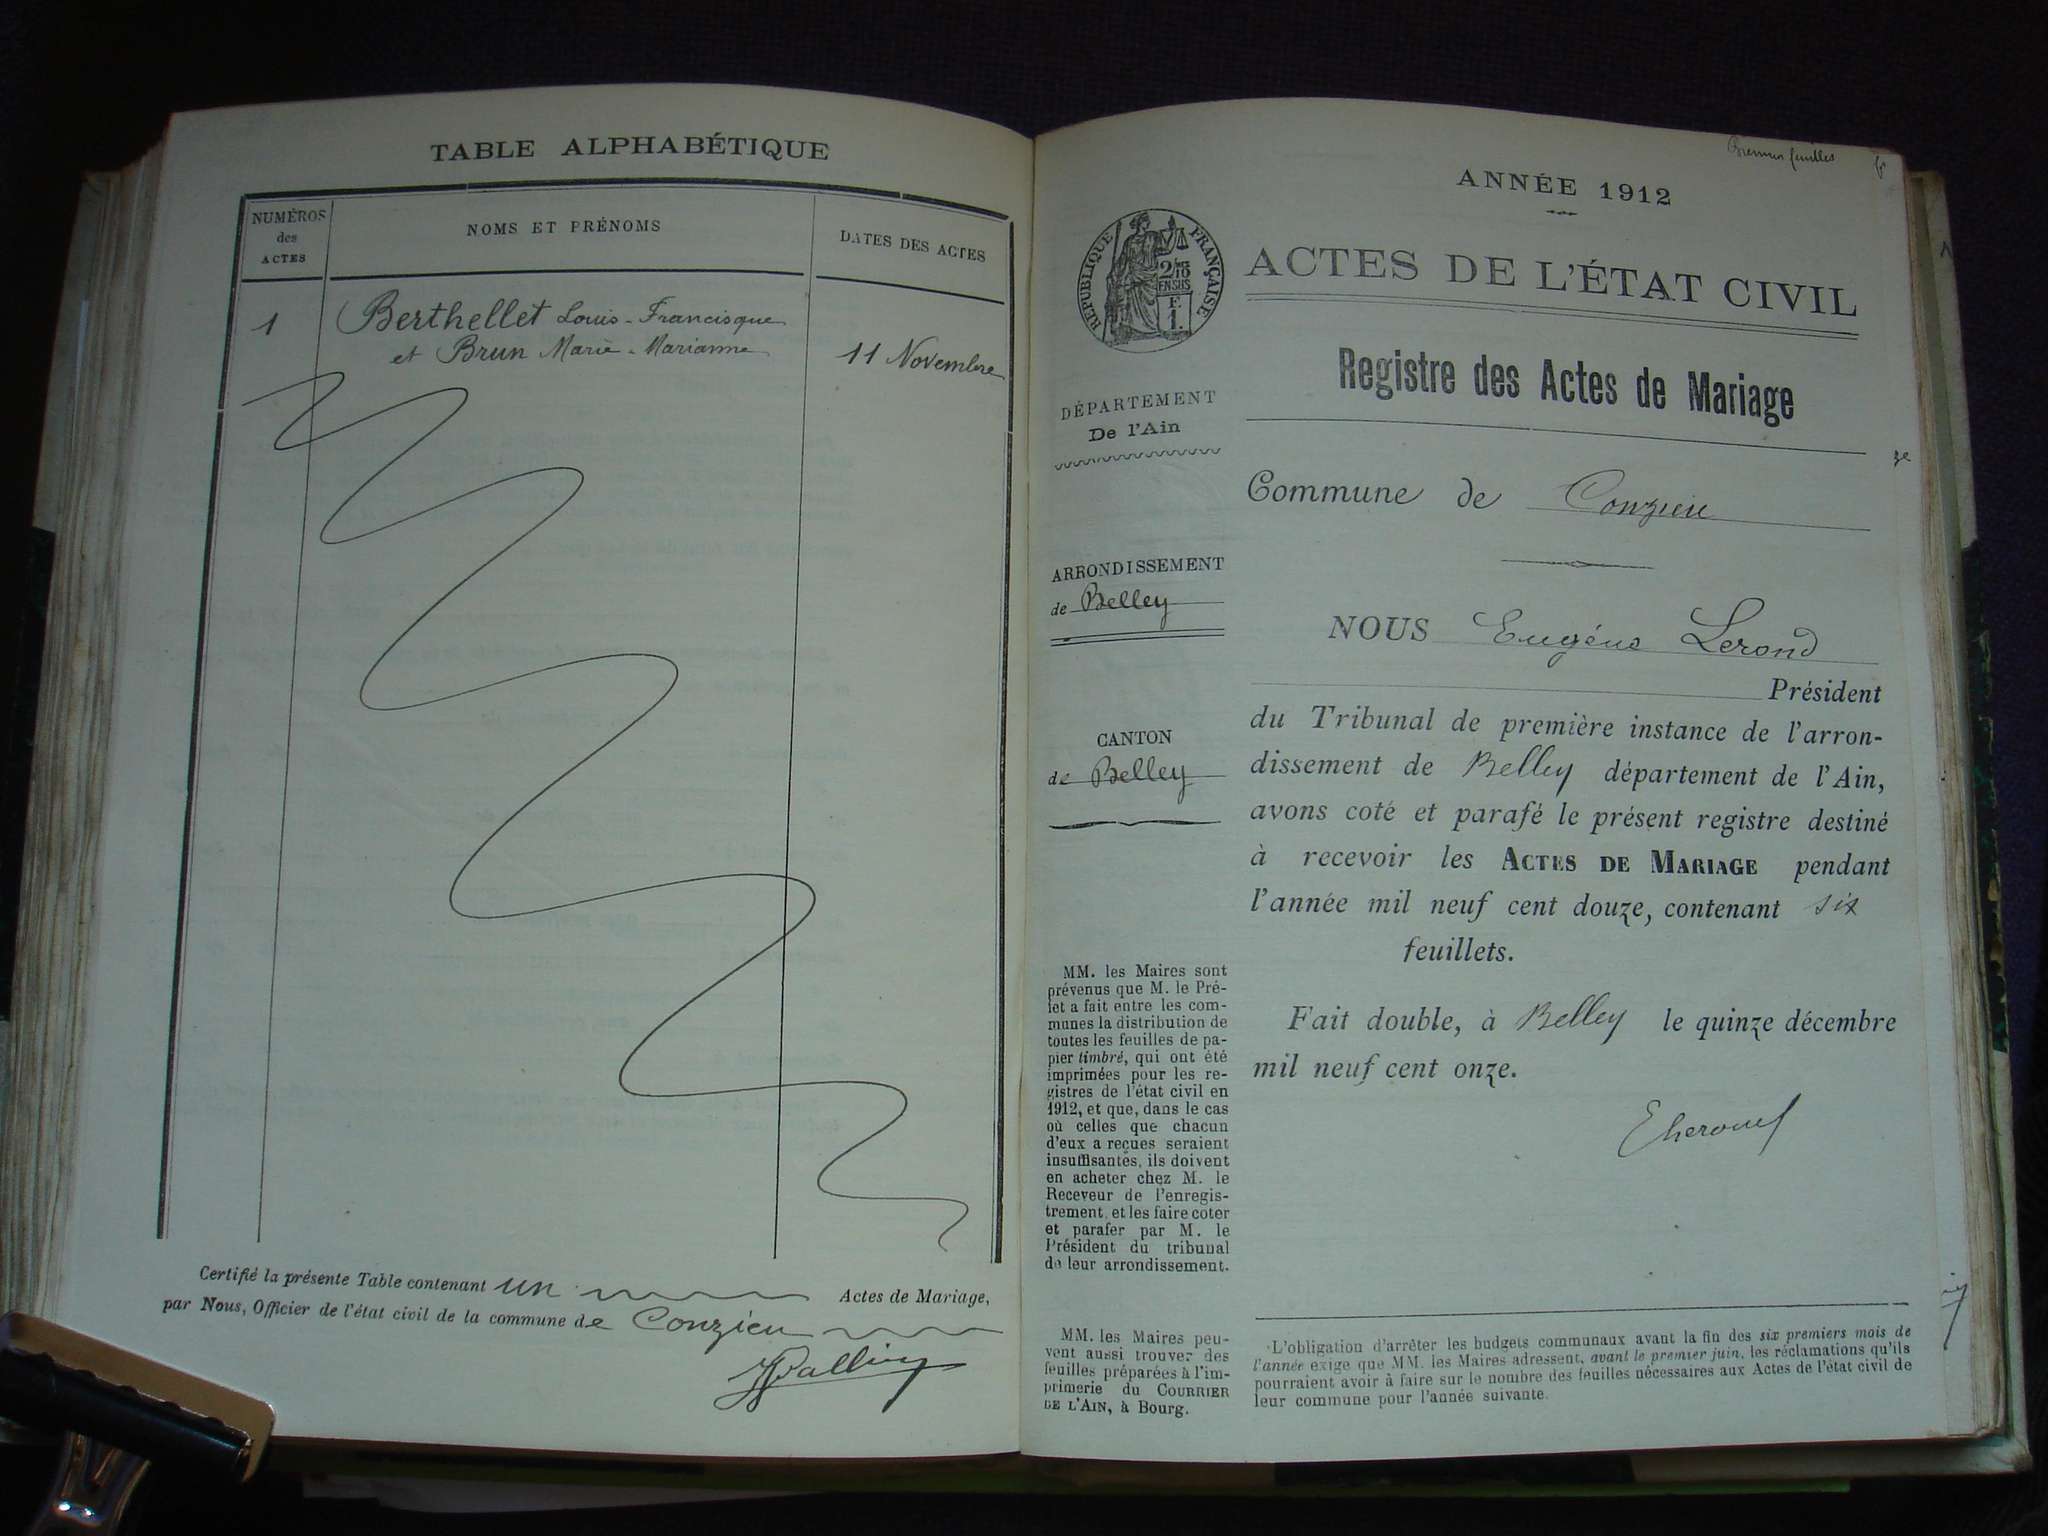 TABLE ALPHABÉTIQUE
NUMÉROS
des
ACTES
NOMS ET PRÉNOMS
DATES DES ACTES
1
Berthellet Louis-Francisque
et Brun Marie-Marianne
11 Novembre
Certifié la présente Table contenant un Actes de Mariage,
par Nous, Officier de l'état civil de la commune de Conzieu
feuilles
ANNÉE 1912
RÉPUBLIQUE FRANÇAISE
2/10 EN SUS
F.
1.
ACTES DE L'ÉTAT CIVIL
Registre des Actes de Mariage
DÉPARTEMENT
De l'Ain
Commune de Conzieu
ARRONDISSEMENT
de Belley
CANTON
de Belley
NOUS Eugène Lerond
Président
du Tribunal de première instance de l'arron-
dissement de Belley département de l'Ain,
avons coté et parafé le présent registre destiné
à recevoir les ACTES DE MARIAGE pendant
l'année mil neuf cent douze, contenant six
feuillets.
Fait double, à Belley le quinze décembre
mil neuf cent onze.
MM. les Maires sont
prévenus que M. le Pré-
fet a fait entre les com-
munes la distribution de
toutes les feuilles de pa-
pier timbré, qui ont été
imprimées pour les re-
gistres de l'état civil en
1912, et que, dans le cas
où celles que chacun
d'eux a reçues seraient
insuffisantes, ils doivent
en acheter chez M. le
Receveur de l'enregis-
trement, et les faire coter
et parafer par M. le
Président du tribunal
de leur arrondissement.
MM. les Maires peu-
vent aussi trouver des
feuilles préparées à l'im-
primerie du COURRIER
DE L'AIN, à Bourg.
L'obligation d'arrêter les budgets communaux avant la fin des six premiers mois de
l'année exige que MM. les Maires adressent, avant le premier juin, les réclamations qu'ils
pourraient avoir à faire sur le nombre des feuilles nécessaires aux Actes de l'état civil de
leur commune pour l'année suivante.